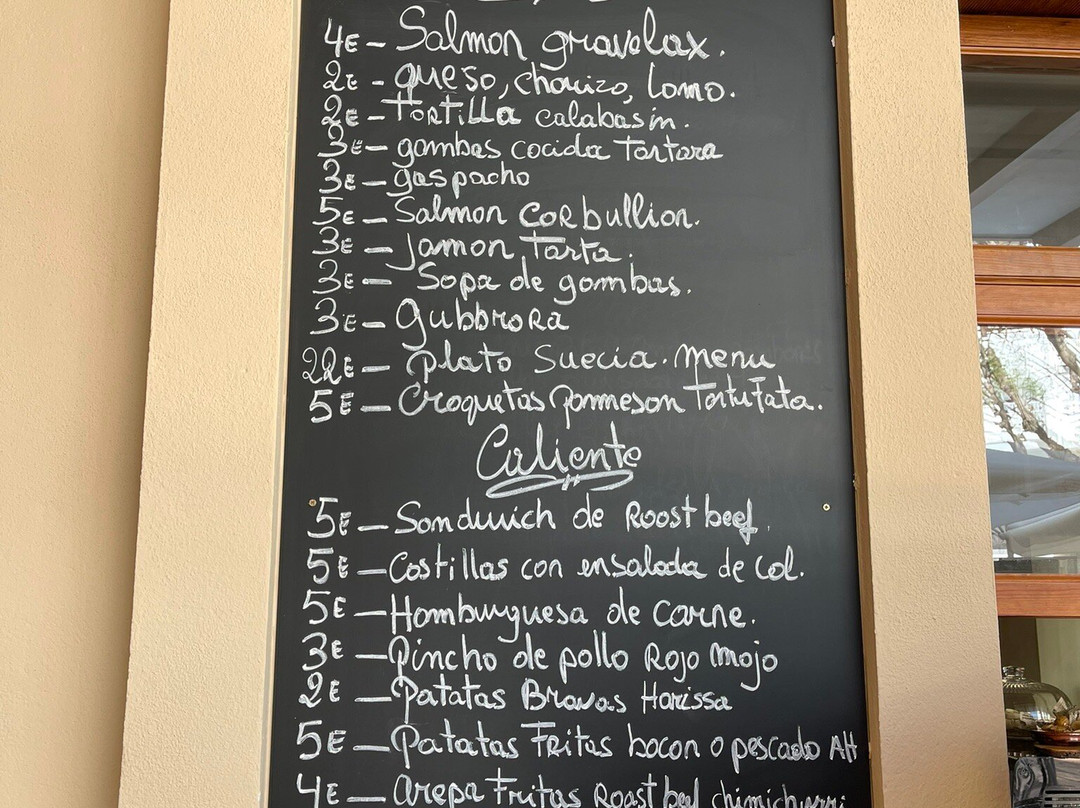 4E - Salmon gravelax.
2E - queso, chorizo, lomo.
2E - Tortilla calabasin.
3E - gambas cocida Tartara
3E - gaspacho
5E - Salmon corbullion.
3E - Jamon, Tarta.
3E - Sopa de gambas.
3E - gubbrora
22E - plato Suecia. menu
5E - Croquetas parmeson
Caliente
5E - Sandwich de Roost beef.
5E - Costillas con ensalada de col.
5E - Hamburguesa de carne.
3E - Pincho de pollo Rojo mojo
2E - Patatas Bravas Harissa
5E - Patatas Fritas bacon o pescado AH
4E - arepa Fritas Roast beef chimichurri